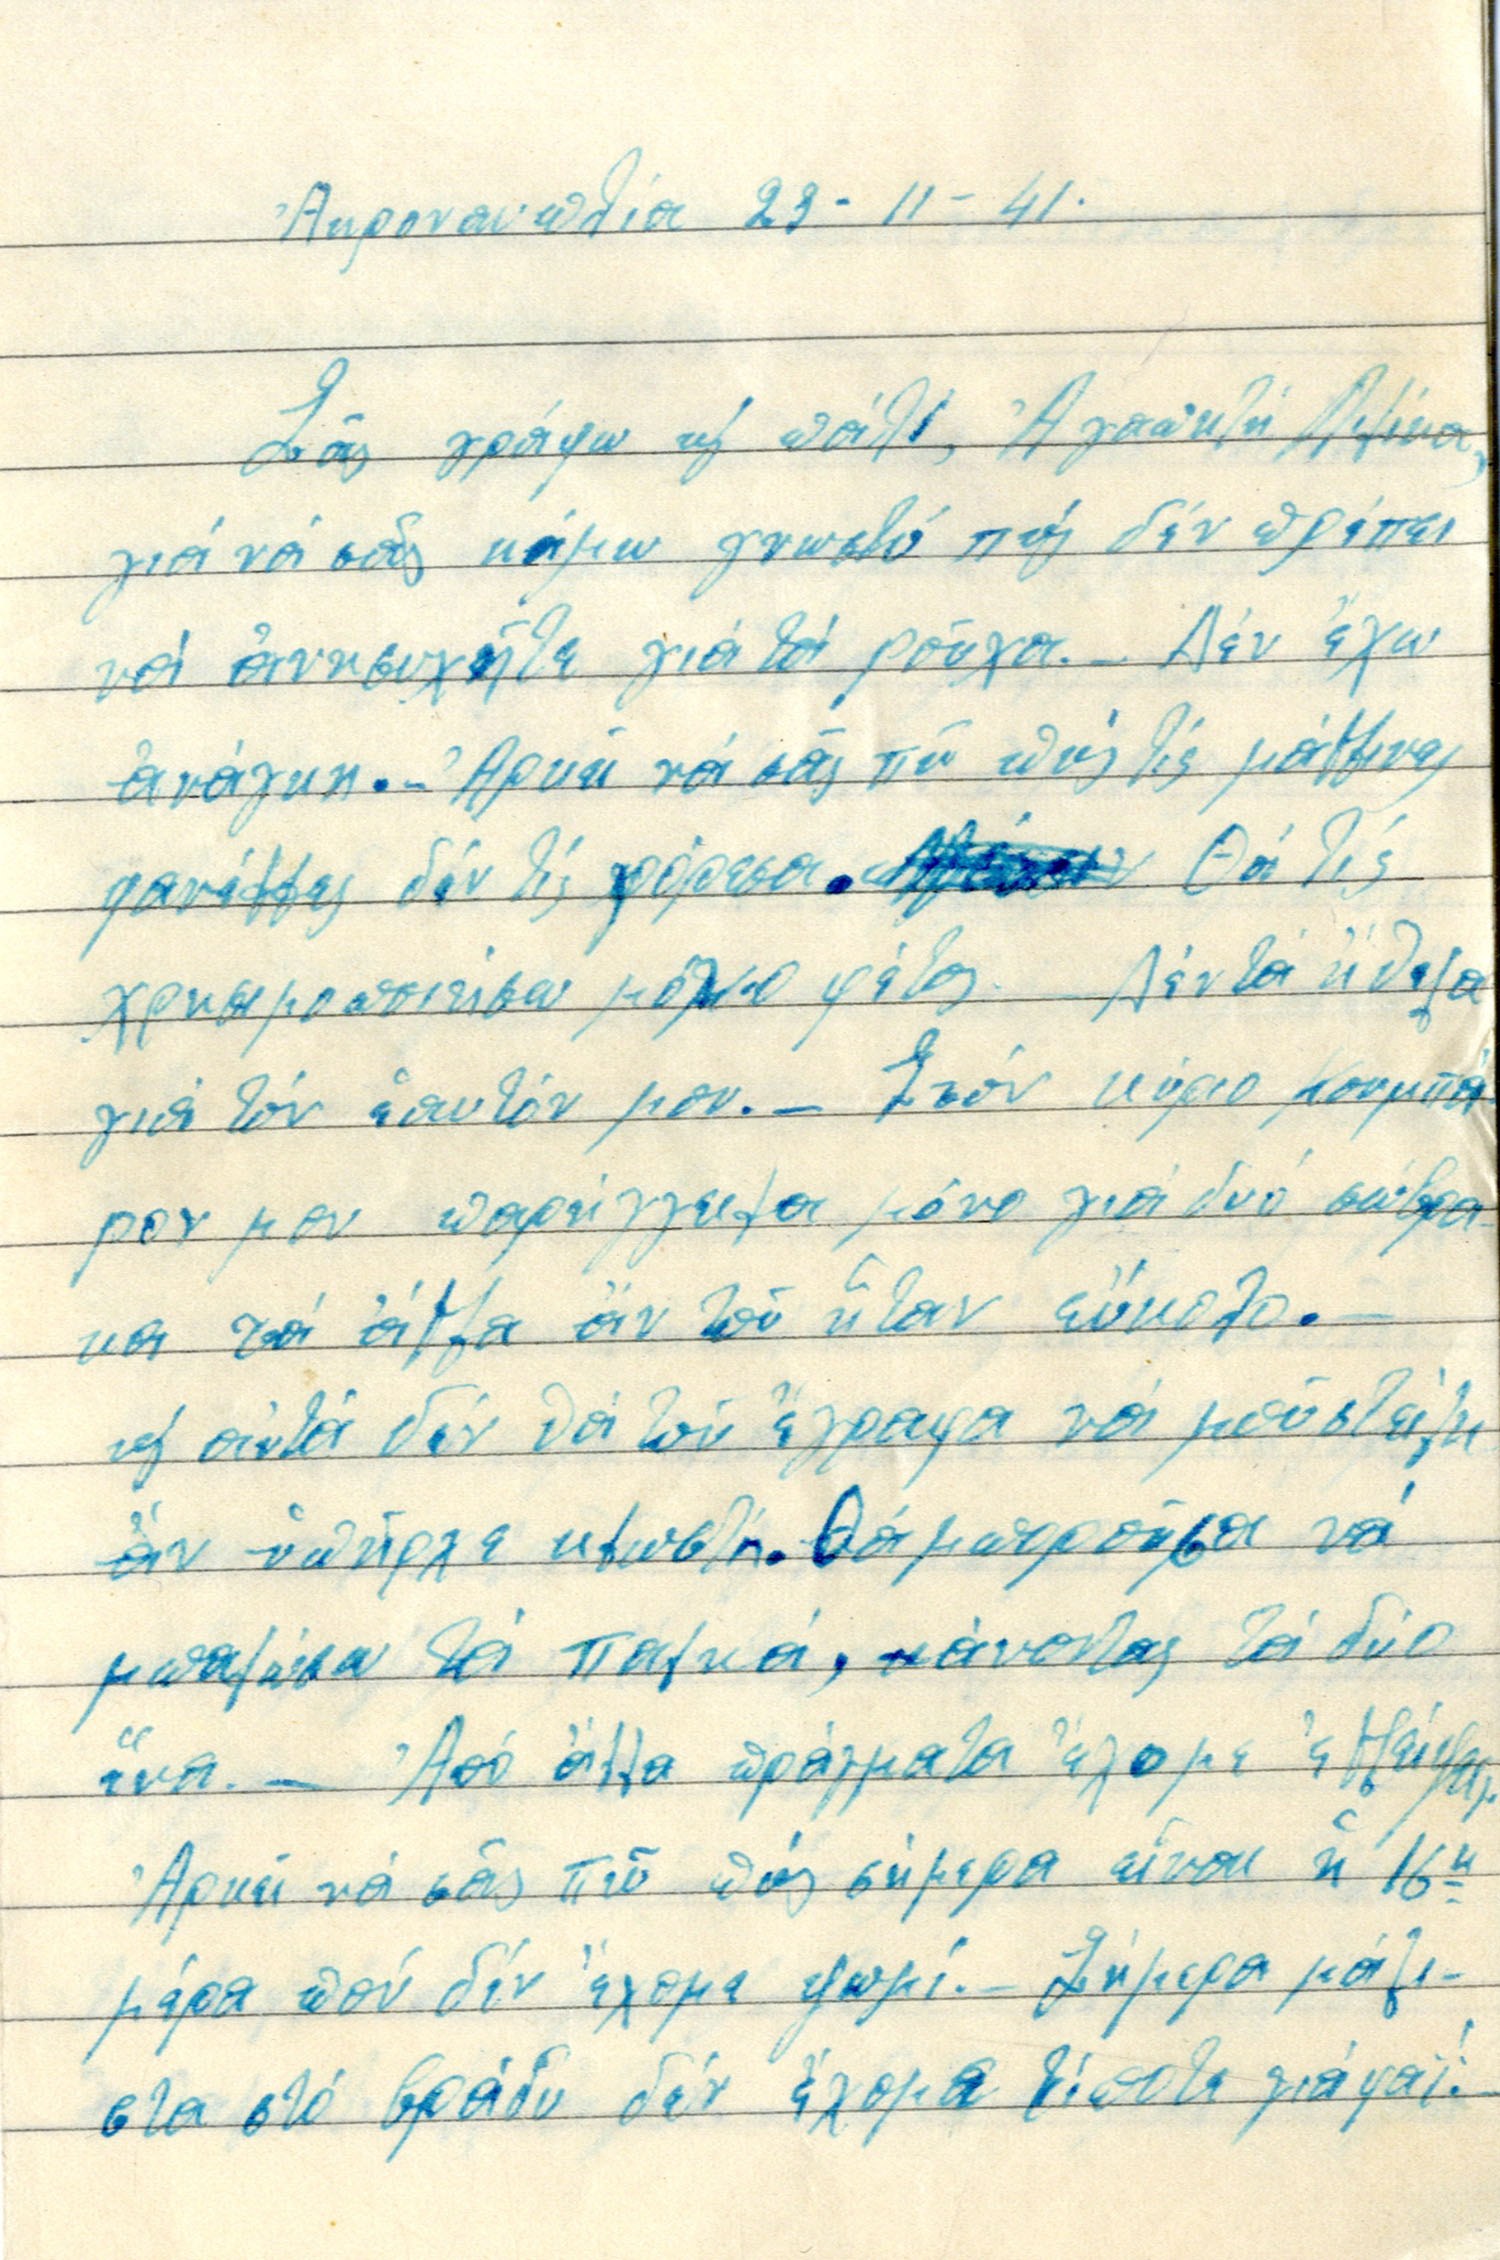 Ἀκροναυπλία 23-11-41.
Σᾶς γράφω κ' πάλι, Ἀγαπητή
γιά νά σᾶς κάμω γνωστό πώς δέν πρέπει
νά ἀνησυχῆτε γιά τά ροῦχα.— Δέν ἔχω
ἀνάγκη.— Ἀρκεῖ νά σᾶς πῶ πώς τίς μάλλινες
φανέλλες δέν τίς φόρεσα. Θά τίς
χρησιμοποιήσω μόλις φέτος. Δέν τά ἤθελα
γιά τόν ἑαυτόν μου.— Στόν κύριο κουμπά-
ρον μου παρήγγειλα μόνο γιά δυό σώβρα-
κα τά ἄλλα ἄν τοῦ ἦταν εὔκολο.—
κ' αὐτά δέν θά τοῦ ἔγραφα νά μοῦ στείλη
ἄν ὑπῆρχε κλωστή. Θά μποροῦσα νά
μπαλώσω τά παλῃά, κάνοντας τά δύο
ἕνα.— Ἀπό ἄλλα πράγματα ἔχομε
Ἀρκεῖ νά σᾶς πῶ πώς σήμερα εἶναι ἡ 16η
μέρα πού δέν ἔχομε ψωμί.— Σήμερα μάλι-
στα στό βράδυ δέν ἔχομε τίποτε γιά φαΐ.